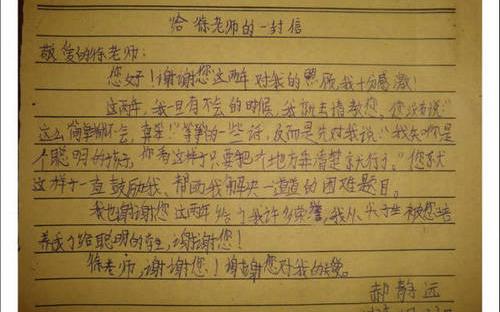 给徐老师的一封信
敬爱的徐老师：
您好！谢谢您这两年对我的照顾，我十分感激！
这两年，我一旦有不会的时候，我就去请教您。您没有说：“
这么简单都不会，真笨！”等等的一些话，反而是对我说：“我知道你是
个聪明的孩子，你看这样子只要把这个地方弄清楚就行了。”您就
这样子一直鼓励我、帮助我解决一道道的困难题目。
我也谢谢您这两年给了我许多荣誉，我从 被您培
养成了个聪明的学生，谢谢您！
徐老师，谢谢您！谢谢您对我的关爱。
郝静远